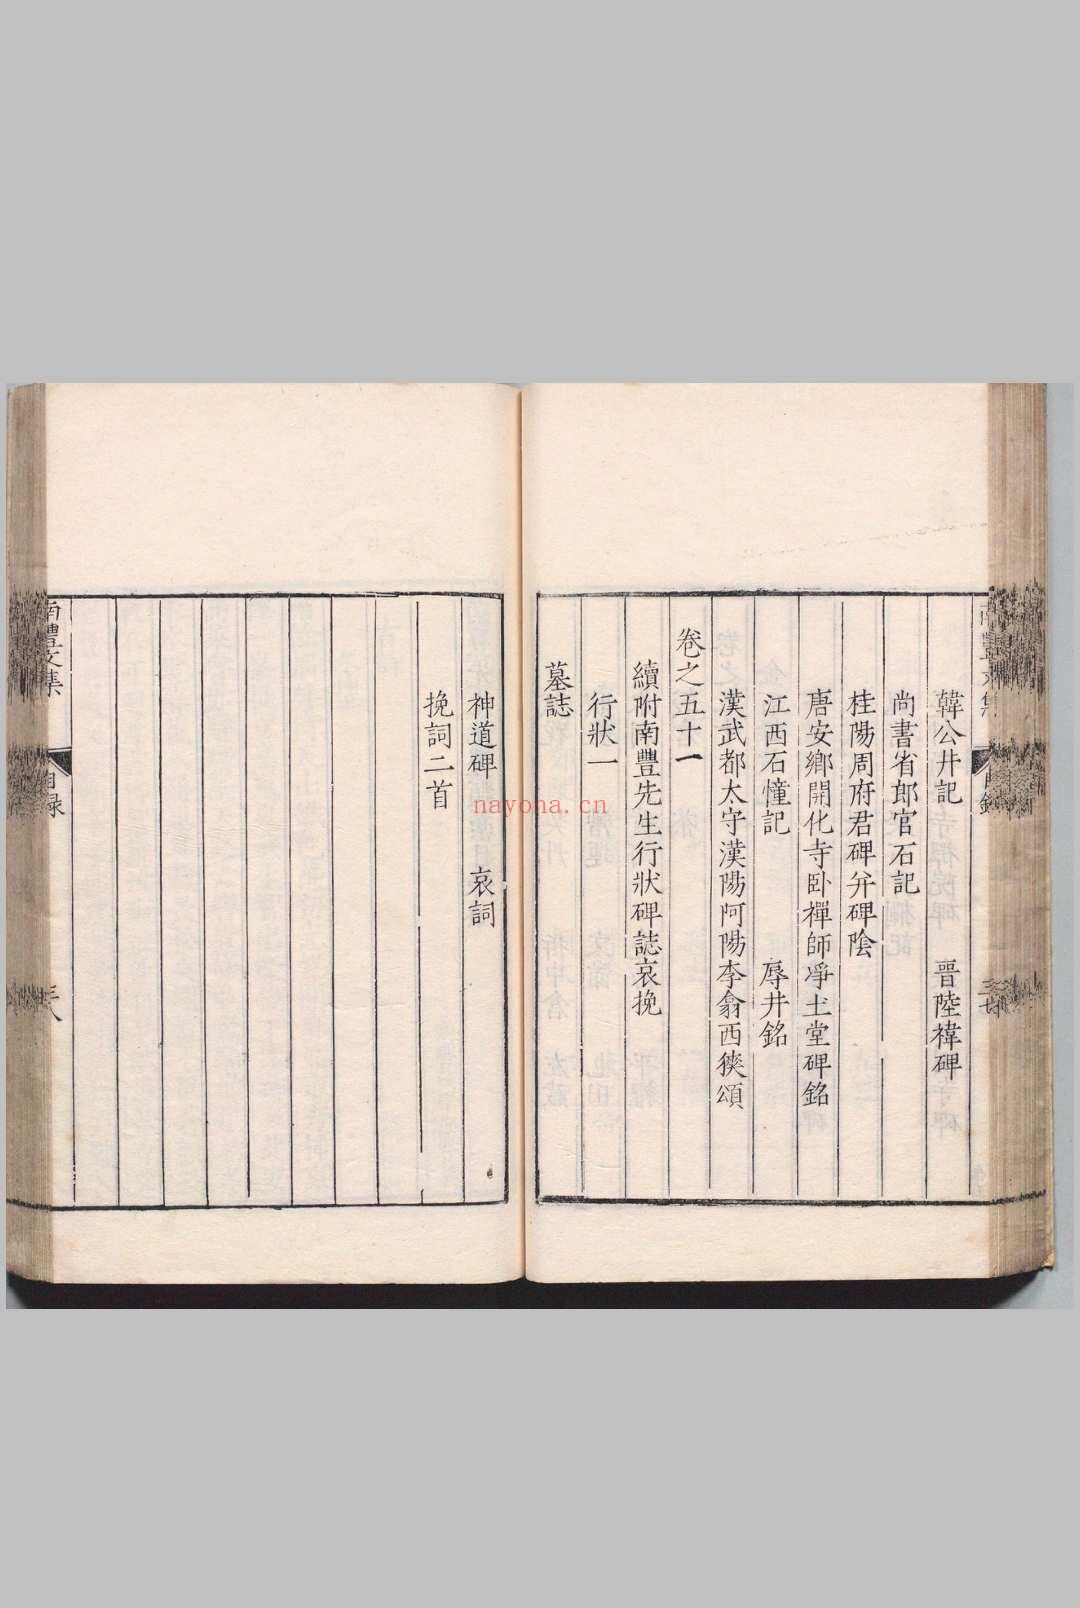 韓公井記　晉陸禕碑
尚書省郎官石記
桂陽周府君碑并碑陰
唐安鄉開化寺臥禪師淨土堂碑銘
江西石幢記　辱井銘
漢武都太守漢陽阿陽李翕西狹頌
卷之五十一
續附南豐先生行狀碑誌哀挽
行狀一
墓誌
神道碑　哀詞
挽詞二首
南豐文集
目錄
nayona.cn